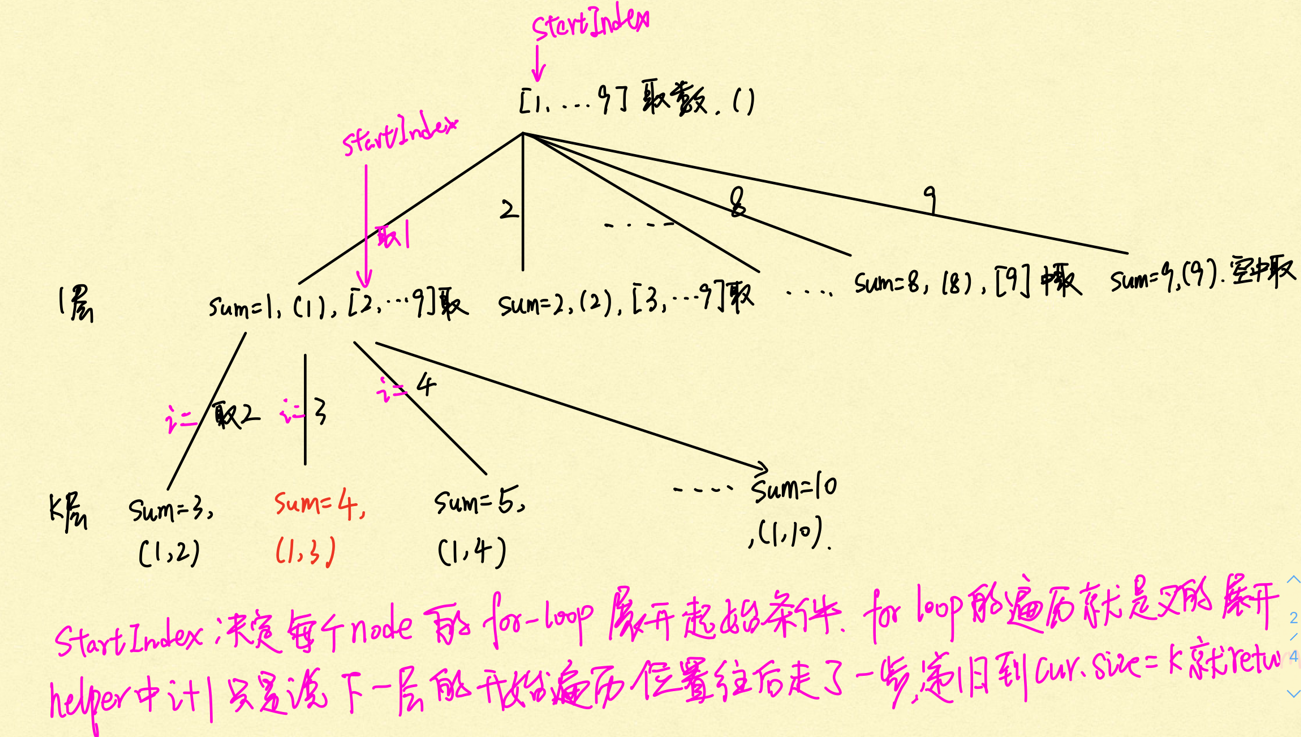 StartIndex
[1, ...9] 取数. ()
startIndex
取1
2
.....
8
9
1层
sum=1, (1), [2, ...9]取
sum=2, (2), [3, ...9]取
....
sum=8, (8), [9] 中取
sum=9, (9). 空中取
i= 取2
i= 3
i= 4
K层
sum=3,
(1,2)
sum=4,
(1,3)
sum=5,
(1,4)
.... sum=10
,(1,10).
StartIndex:决定每个node的for-loop展开起始条件. for loop的遍历就是叉的展开
helper中i+1只是说下一层的开始遍历位置往后走了一步,递归到cur.size=k就retu
2
/
4